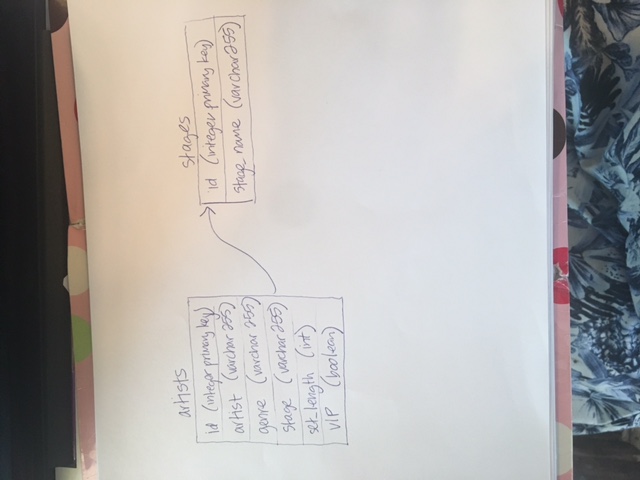 artists
id (integer primary key)
artist (varchar 255)
genre (varchar 255)
stage (varchar 255)
set_length (int)
VIP (boolean)
stages
id (integer primary key)
stage_name (varchar 255)